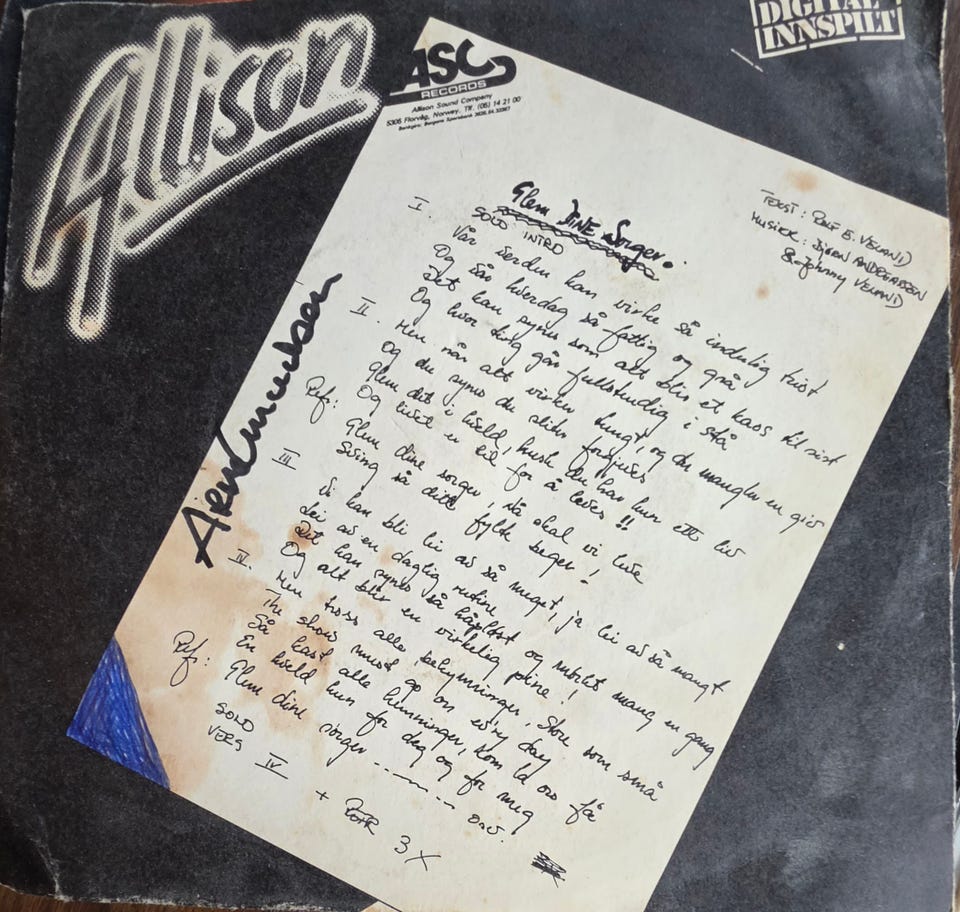 Allison
DIGITAL
INNSPILT
ASC
RECORDS
Allison Sound Company
5305 Florvåg, Norway. Tlf. (05) 14 21 00
Glem DINE Sorger.
TEKST: ROLF E. VELAND
MUSIKK: BJØRN ANDEGASSEN
& Johnny VELAND
SOLO INTRO
I. Vår verden kan virke så inderlig trist
Og vår hverdag så fattig og grå
Det kan synes som alt blir et kaos til sist
Og hvor ting går fullstendig i stå
II. Men når alt virker tungt, og du mangler en giv
Og du synes du aldri fornyes
Glem det i kveld, husk du har kun ett liv
Og livet er til for å leves!!
Ref: Glem dine sorger, nå skal vi leve
Sving så ditt fylte beger!
III Vi kan bli lei av så meget, ja lei av så mangt
Lei av en daglig rutine
Det kan synes så håpløst og mørkt mang en gang
Og alt blir en virkelig pine!
IV. Men tross alle bekymringer, store som små
The show must go on ev'ry day
Så kast alle hemninger, kom la oss få
En kveld kun for deg og for meg
Ref: Glem dine sorger ------- osv.
SOLO
VERS IV
+ REFR 3 X